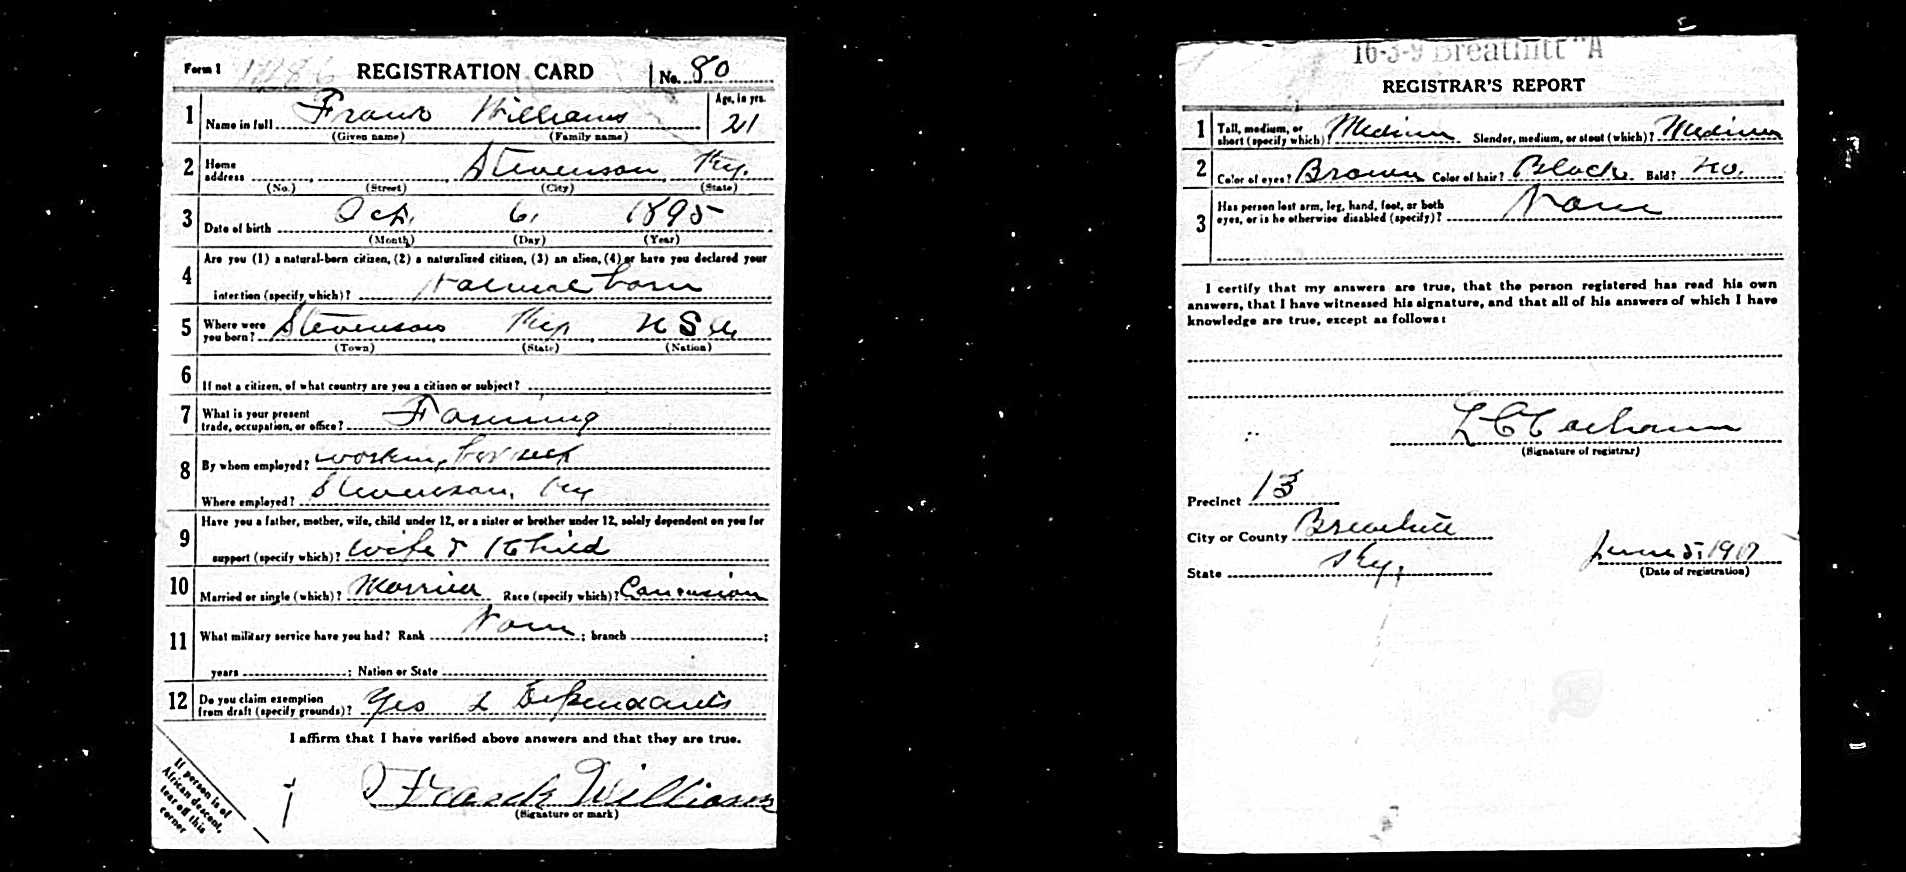 Form 1 1286 REGISTRATION CARD No. 80
1 Name in full Frank Williams Age, in yrs. 21
(Given name) (Family name)
2 Home address Stevenson Ky.
(No.) (Street) (City) (State)
3 Date of birth Oct. 6, 1895
(Month) (Day) (Year)
4 Are you (1) a natural-born citizen, (2) a naturalized citizen, (3) an alien, (4) or have you declared your
intention (specify which)? Natural born
5 Where were you born? Stevenson Ky U S A
(Town) (State) (Nation)
6 If not a citizen, of what country are you a citizen or subject?
7 What is your present trade, occupation, or office? Farming
8 By whom employed? working for self
Where employed? Stevenson, Ky
9 Have you a father, mother, wife, child under 12, or a sister or brother under 12, solely dependent on you for
support (specify which)? Wife & 1 Child
10 Married or single (which)? Married Race (specify which)? Caucasian
11 What military service have you had? Rank None ; branch ;
years ; Nation or State
12 Do you claim exemption from draft (specify grounds)? Yes 2 Dependants
I affirm that I have verified above answers and that they are true.
Frank Williams
(Signature or mark)
If person is of
African descent,
tear off this
corner
16-3-9 Breathitt "A
REGISTRAR'S REPORT
1 Tall, medium, or short (specify which)? Medium Slender, medium, or stout (which)? Medium
2 Color of eyes? Brown Color of hair? Black Bald? No.
3 Has person lost arm, leg, hand, foot, or both
eyes, or is he otherwise disabled (specify)? None
I certify that my answers are true, that the person registered has read his own
answers, that I have witnessed his signature, and that all of his answers of which I have
knowledge are true, except as follows:
(Signature of registrar)
Precinct 13
City or County Breathitt
State Ky. June 5, 1917
(Date of registration)